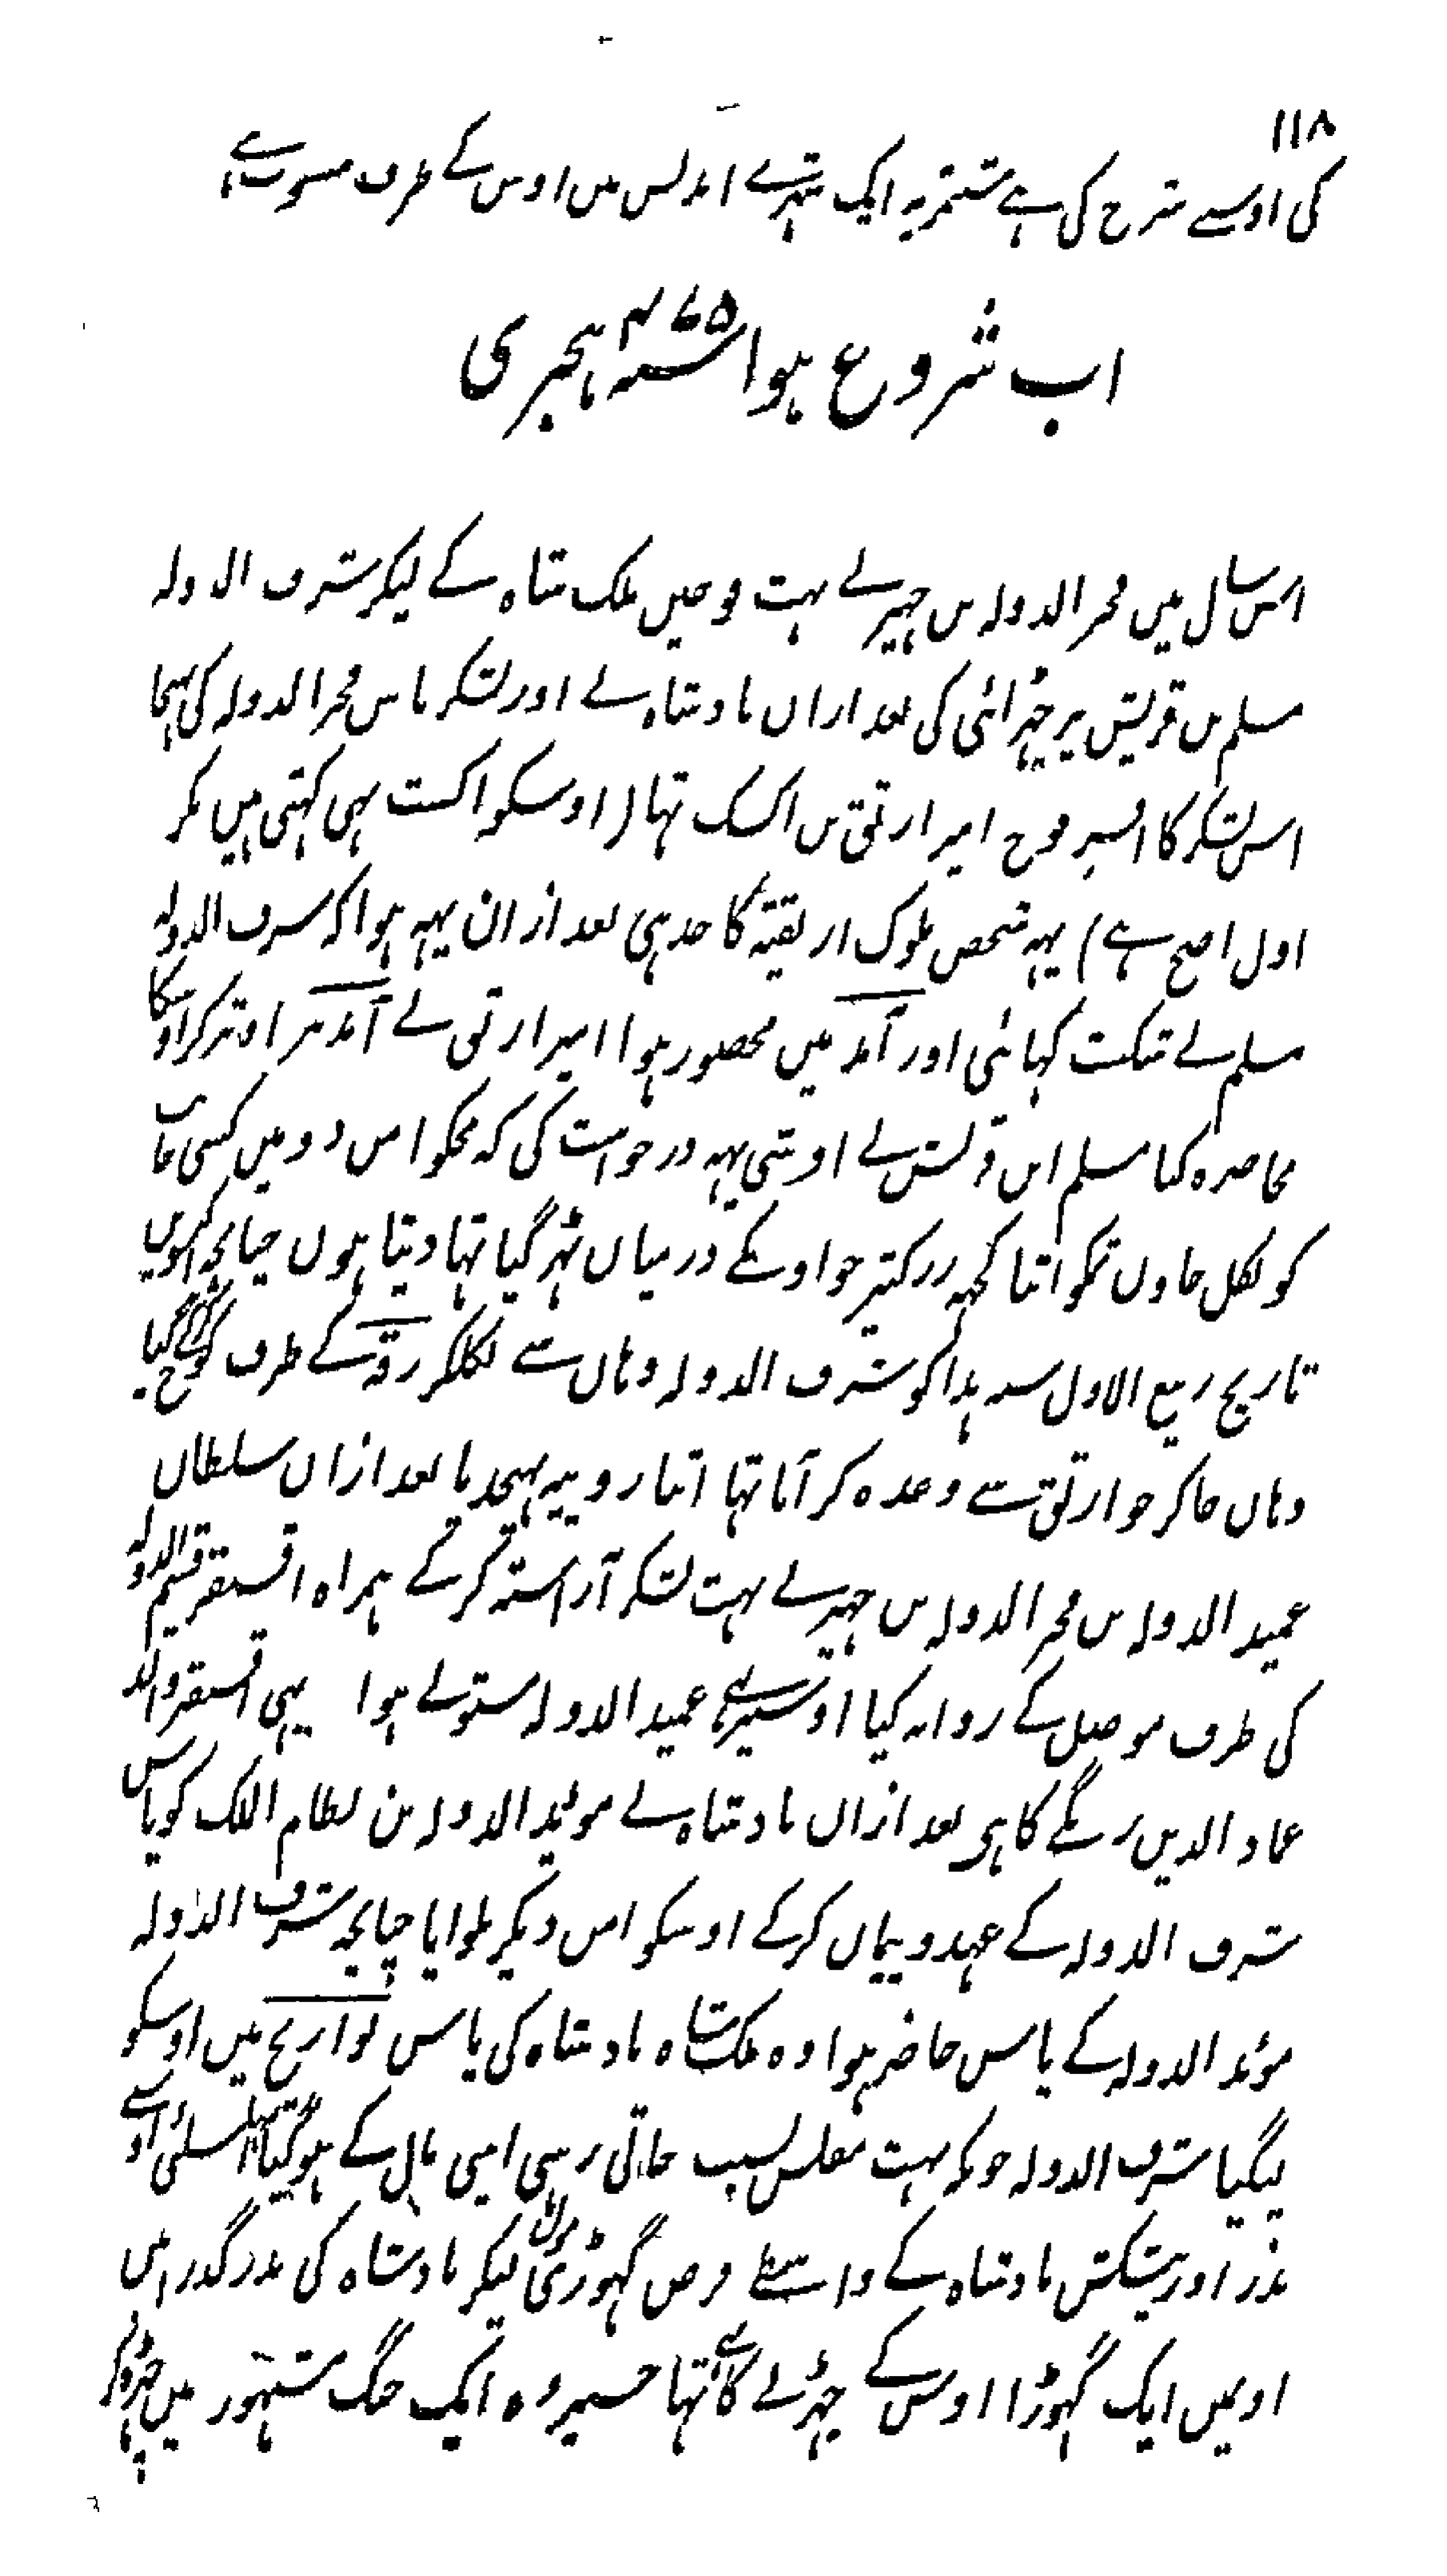 ۱۱۸
کی اوسے شرح کی ہے شنتمریہ ایک شہر ہے اندلس میں اوس کے طرف منسوب ہے
اب شروع ہوا سنہ ۴۷۵ ہجری
اس سال میں فخر الدولہ بن جہیر نے بہت فوجیں ملک شاہ کے لیکر شرف الدولہ
مسلم بن قریش پر چڑائی کی بعد ازاں بادشاہ نے اور لشکر پاس فخر الدولہ کی بہیجا
اس لشکر کا افسر فوج امیر ارتق بن اکسک تہا (اوسکو اکست بہی کہتی ہیں مگر
اول اصح ہے) یہہ شخص ملوک ارتقیہ کا جد ہی بعد ازان یہہ ہوا کہ شرف الدولہ
مسلم نے شکست کہائی اور آمد میں محصور ہوا امیر ارتق نے آمد پر اوتر کر اوسکا
محاصرہ کیا مسلم ابن قریش نے اوسی یہہ درخواست کی کہ مجکو اس دو میں کسی جانب
کو نکل جاون تمکو اتنا کچہہ زر کثیر جو اوسکے درمیاں ٹہر گیا تہا دیتا ہوں چنانچہ اکیسویں
تاریخ ربیع الاول سنہ ہذا کو شرف الدولہ وہاں سے نکلکر رقہ کے طرف کوچ کر گیا
وہاں جاکر جو ارتق سے وعدہ کر آیا تہا اتنا روپیہ بہیجدیا بعد ازاں سلطان
عمید الدولہ بن فخر الدولہ بن جہیر نے بہت لشکر آراستہ کرکے ہمراہ اقسنقر قسیم الدولہ
کی طرف موصل کے روانہ کیا اوسپر عمید الدولہ مستولے ہوا یہی اقسنقر والد
عماد الدین زنگے کا ہی بعد ازاں بادشاہ نے موئید الدولہ بن نظام الملک کو پاس
شرف الدولہ کے عہد و پیماں کرکے اوسکو امن دیکر بلوایا چنانچہ شرف الدولہ
موئد الدولہ کے پاس حاضر ہوا وہ ملک شاہ بادشاہ کی پاس بوازیج میں اوسکو
لیگیا شرف الدولہ جو کہ بہت مفلس بسبب جاتی رہی اپنی مال کے ہوگیا تہا اسلئی اوسنے
نذر اور پیشکش بادشاہ کے واسطے قرض گہوڑی مول لیکر بادشاہ کی نذر گذرانیں
اونمیں ایک گہوڑا اوس کے چہڑنے کا تہا جسپر وہ ایک جنگ مشہور میں چڑہکر